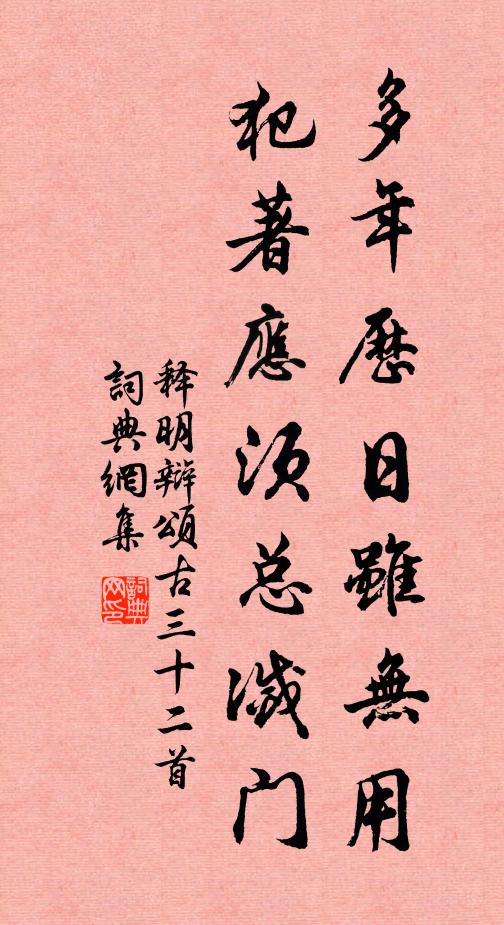 多年歷日雖無用
犯著應須总滅门
释明辯頌古三十二首
詞典網集
詞典网印